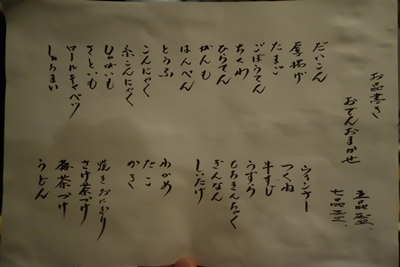 お品書き
おでんおまかせ
五品盛
七品盛
だいこん
厚揚げ
たまご
ごぼうてん
ちくわ
ひらてん
がんも
はんぺん
とうふ
こんにゃく
糸こんにゃく
じゃがいも
さといも
ロールキャベツ
しゅうまい
ウィンナー
つくね
牛すじ
うずら
もちきんちゃく
ぎんなん
しいたけ
わかめ
たこ
かき
焼きおにぎり
さけ茶づけ
梅茶づけ
うどん